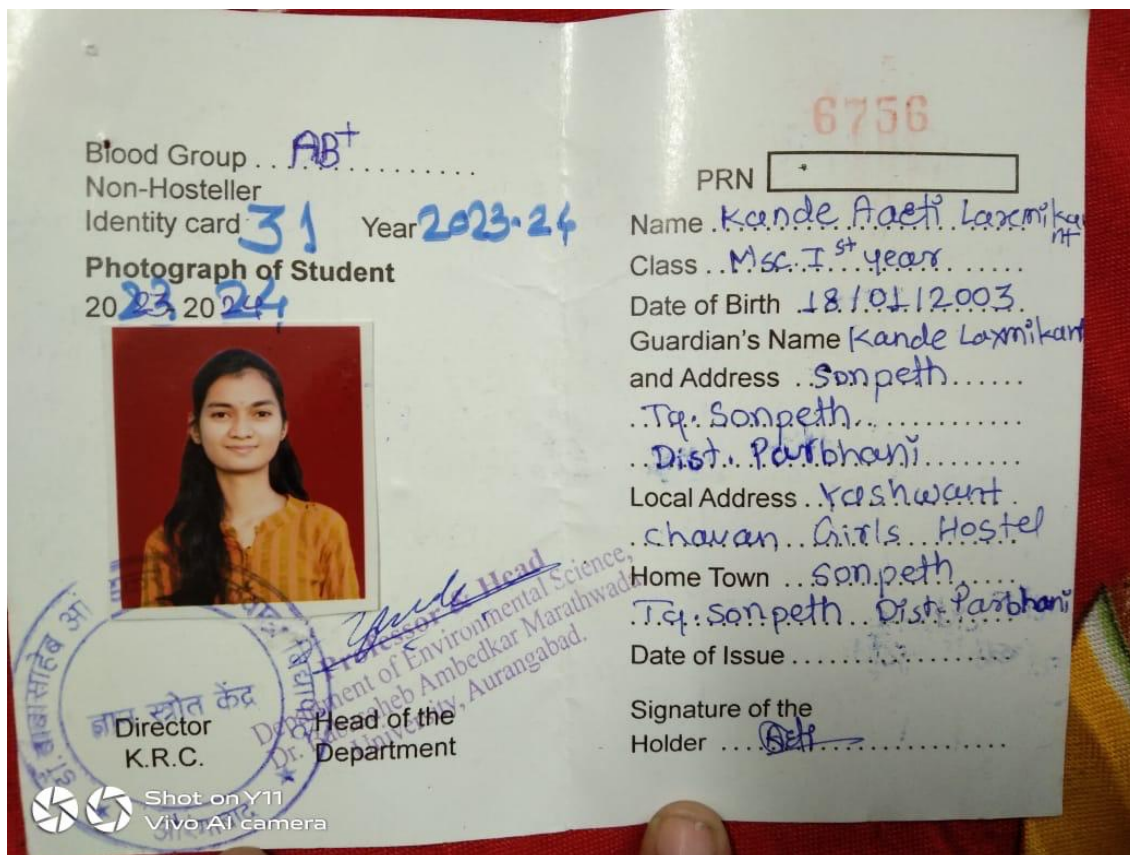 Blood Group . . AB+ . . . . . . . . . . . .
Non-Hosteller
Identity card 31 Year 2023-24
Photograph of Student
2023 2024
Professor & Head
Department of Environmental Science,
Dr. Babasaheb Ambedkar Marathwada
University, Aurangabad.
ज्ञान स्त्रोत केंद्र
Director
K.R.C.
Head of the
Department
Shot on Y11
Vivo AI camera
6756
PRN
Name . Kande Aarti Laxmikant
Class . . Msc. I st year
Date of Birth 18/01/2003
Guardian's Name Kande Laxmikant
and Address . . Sonpeth . . . . . .
. . Tq. Sonpeth
. . Dist. Parbhani
Local Address . . Yashwant .
. chavan Girls Hostel
Home Town . . Sonpeth
. Tq. Sonpeth Dist. Parbhani
Date of Issue . . . . . . . . . . . . . . . . . .
Signature of the
Holder